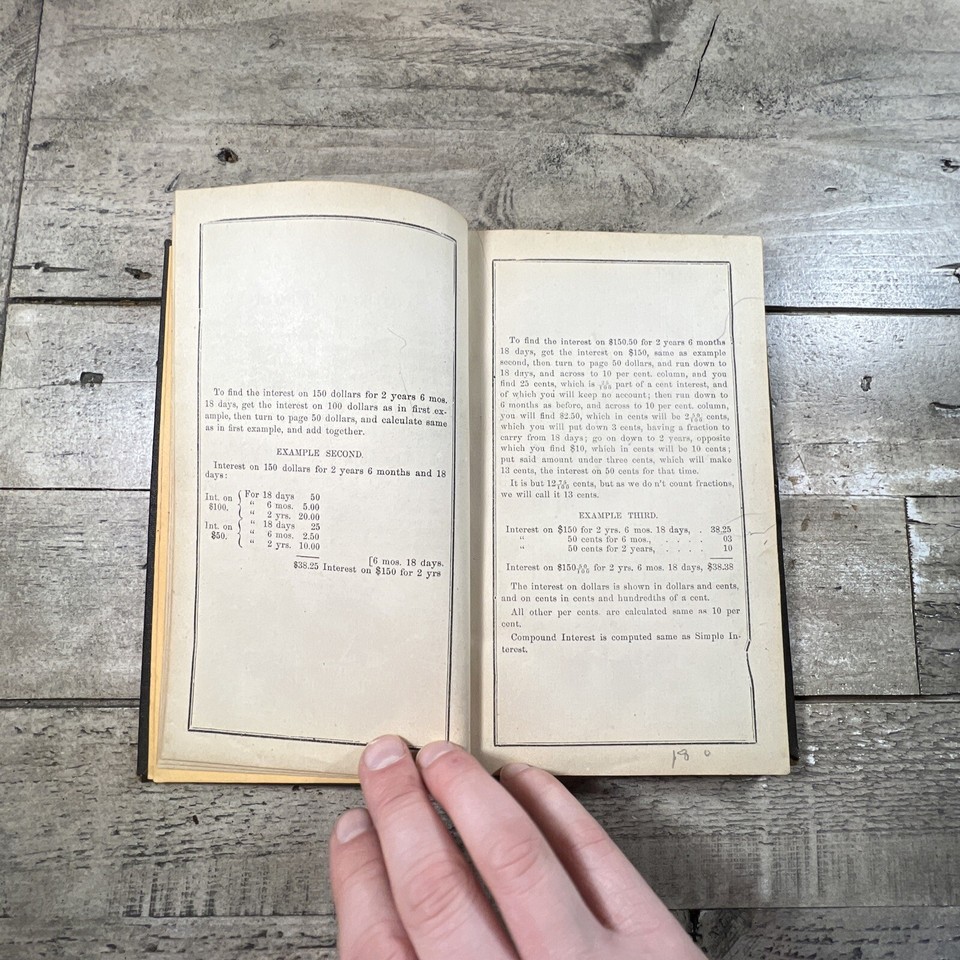 To find the interest on 150 dollars for 2 years 6 mos.
18 days, get the interest on 100 dollars as in first ex-
ample, then turn to page 50 dollars, and calculate same
as in first example, and add together.
EXAMPLE SECOND.
Interest on 150 dollars for 2 years 6 months and 18
days:
Int. on $100. { For 18 days 50
“ 6 mos. 5.00
“ 2 yrs. 20.00
Int. on $50. { “ 18 days 25
“ 6 mos. 2.50
“ 2 yrs. 10.00
[6 mos. 18 days.
$38.25 Interest on $150 for 2 yrs
To find the interest on $150.50 for 2 years 6 months
18 days, get the interest on $150, same as example
second, then turn to page 50 dollars, and run down to
18 days, and across to 10 per cent. column, and you
find 25 cents, which is 25/100 part of a cent interest, and
of which you will keep no account; then run down to
6 months as before, and across to 10 per cent. column,
you will find $2.50, which in cents will be 2 50/100 cents,
which you will put down 3 cents, having a fraction to
carry from 18 days; go on down to 2 years, opposite
which you find $10, which in cents will be 10 cents;
put said amount under three cents, which will make
13 cents, the interest on 50 cents for that time.
It is but 12 75/100 cents, but as we don't count fractions,
we will call it 13 cents.
EXAMPLE THIRD.
Interest on $150 for 2 yrs. 6 mos. 18 days, . 38.25
“ 50 cents for 6 mos., . . . . 03
“ 50 cents for 2 years, . . . . 10
Interest on $150 50/100 for 2 yrs. 6 mos. 18 days, $38.38
The interest on dollars is shown in dollars and cents,
and on cents in cents and hundredths of a cent.
All other per cents. are calculated same as 10 per
cent.
Compound Interest is computed same as Simple In-
terest.
18 0